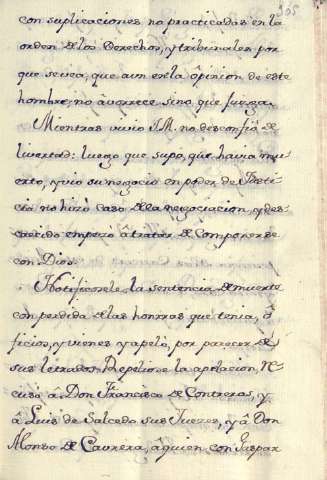 305
con suplicaciones no practicadas en la
orden de los Derechos, y tribunales por
que se vea, que aun en la opinion de este
hombre, no aborrece sino que juzga.
Mientras vivio S.M. no desconfiò de
livertad: luego que supo, que havia mu
erto, y vio su negocio en poder de Justi
cia no hizo caso de la negociacion, y des
caecido empezò à tratar de Componerse
con Dios.
Notificonele la sentencia de muerte
con perdida de las honrras que tenia, ò
ficios, y vienes y apelò, por parecer de
sus letrados Repelio se la apelacion, Re
cusò à Don Francisco de Contreras, y
à Luis de Salcedo sus Jueces, y à Don
Alonso de Cavrera, à quien con Gaspar